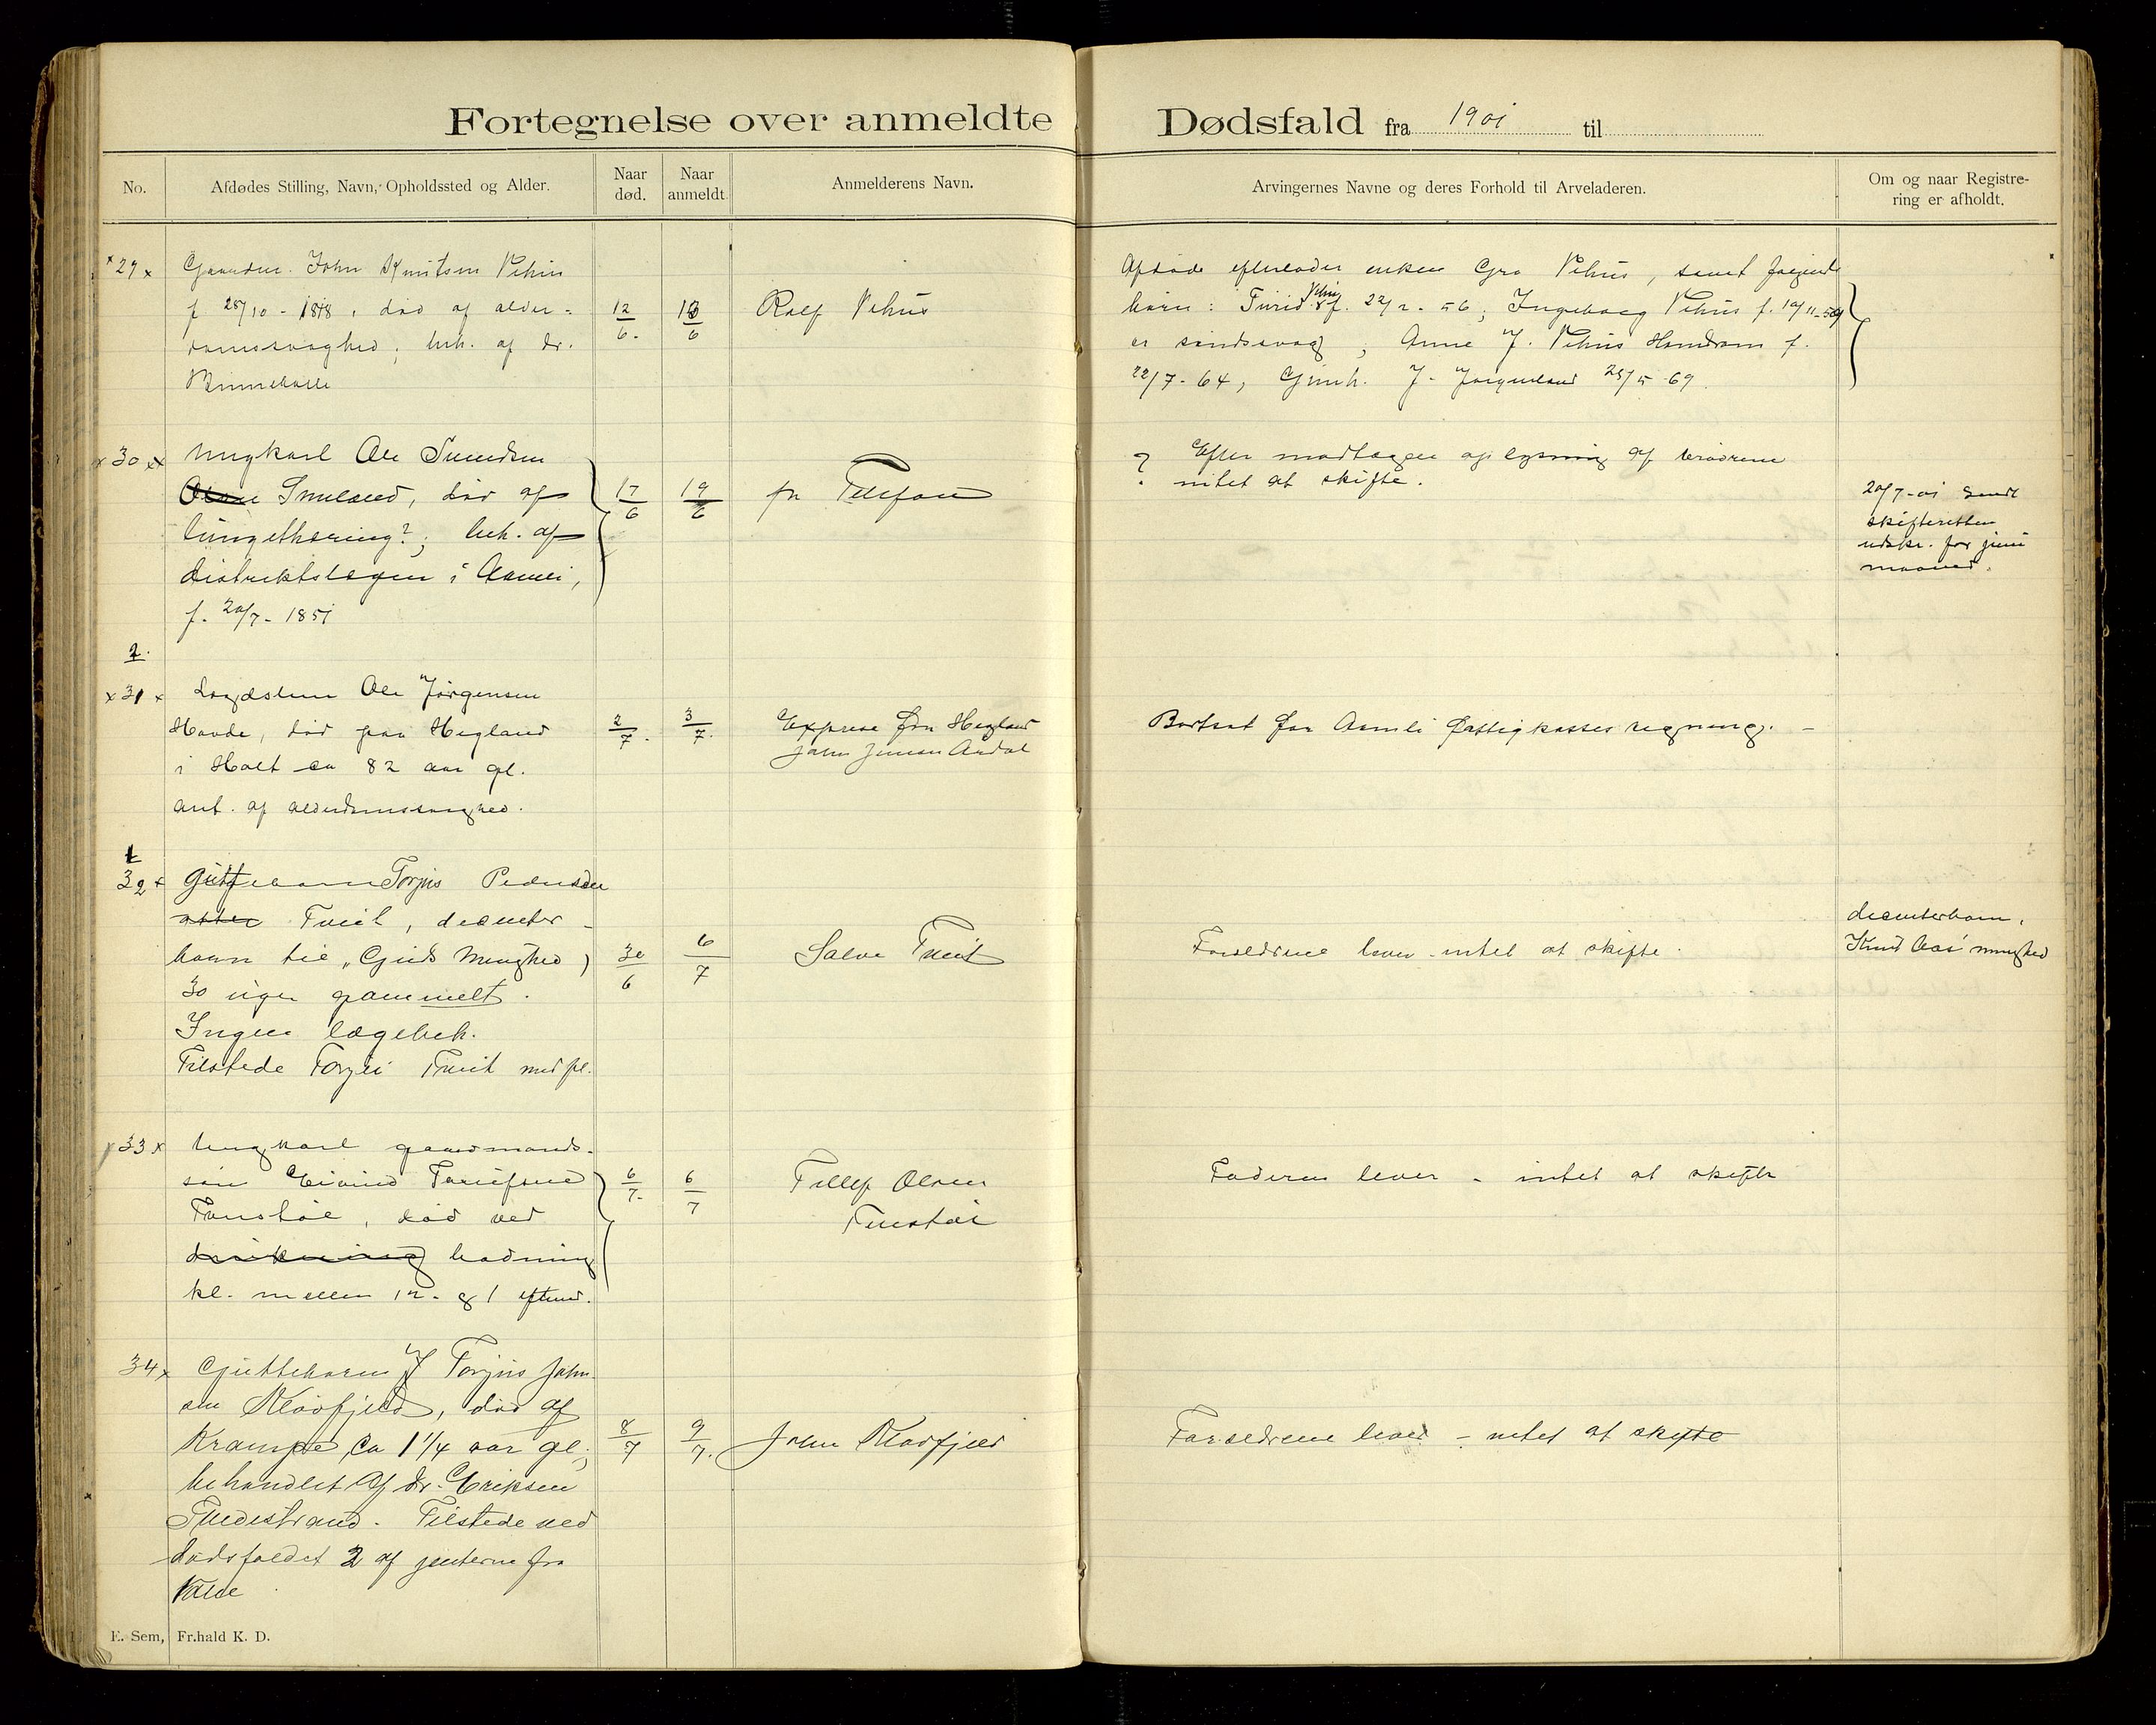 Fortegnelse over anmeldte Dødsfald fra 1901 til
No.
Afdødes Stilling, Navn, Opholdssted og Alder.
Naar død.
Naar anmeldt.
Anmelderens Navn.
Arvingernes Navne og deres Forhold til Arveladeren.
Om og naar Registrering er afholdt.
29 Gaardm. John Knutsen Vehus
f 28/10 - 1818, död af alder-
domssvaghed; beh. af dr.
12/6. 13/6 Rolf Vehus
Afdöde efterlader enken Gro Vehus, samt fölgende
börn: Turid Vehus f. 22/2. 56; Ingeborg Vehus f. 10/11-59
er sindssvag, Anne J. Vehus f.
22/7-64, Gunh. J. 25/5-69.
30 Ungkarl Ole Svendsen
Smeland, död af
lungethæring?; beh. af
distriktslægen i Aamli,
f. 20/7-1851
17/6 19/6 pr Telefon
? Efter modtagen oplysning af brödrene
intet at skifte.
20/7-01 sendt
skifteretten
udskr. for juni
maaned.
2.
31 Lægdslem Ole Jörgensen
Hovde, död paa Hegland
i Holt ca 82 aar gl.
ant. af alderdomssvaghed.
2/7. 3/7. Expresse fra Hegland
John Jensen
Bortsat for Aamli fattigkasses regning. -
1
32 Guttebarn Torjus Pedersen
Tveit, dissenter-
barn til "Guds Menighed"
30 uger gammelt.
Ingen lægebeh.
Tilstede Tveit med fl.
30/6 6/7 Salve Tveit
Forældrene lever - intet at skifte.
dissenterbarn,
Knut menighed
33 Ungkarl gaardmands-
sön Eivind
död ved
drukning badning
kl. mellem 12. og 1 efterm.
6/7. 6/7 Tellef Olsen
Faderen lever - intet at skifte
34 Guttebarn Torjus John-
sen Klövfjeld, död af
Krampe, ca 1 1/4 aar gl.;
behandlet af dr. Eriksen
Tvedestrand. Tilstede ved
dödsfaldet 2 af jenterne fra
8/7 9/7. John Klövfjeld
Forældrene lever - intet at skifte
E. Sem, Fr.hald K. D.